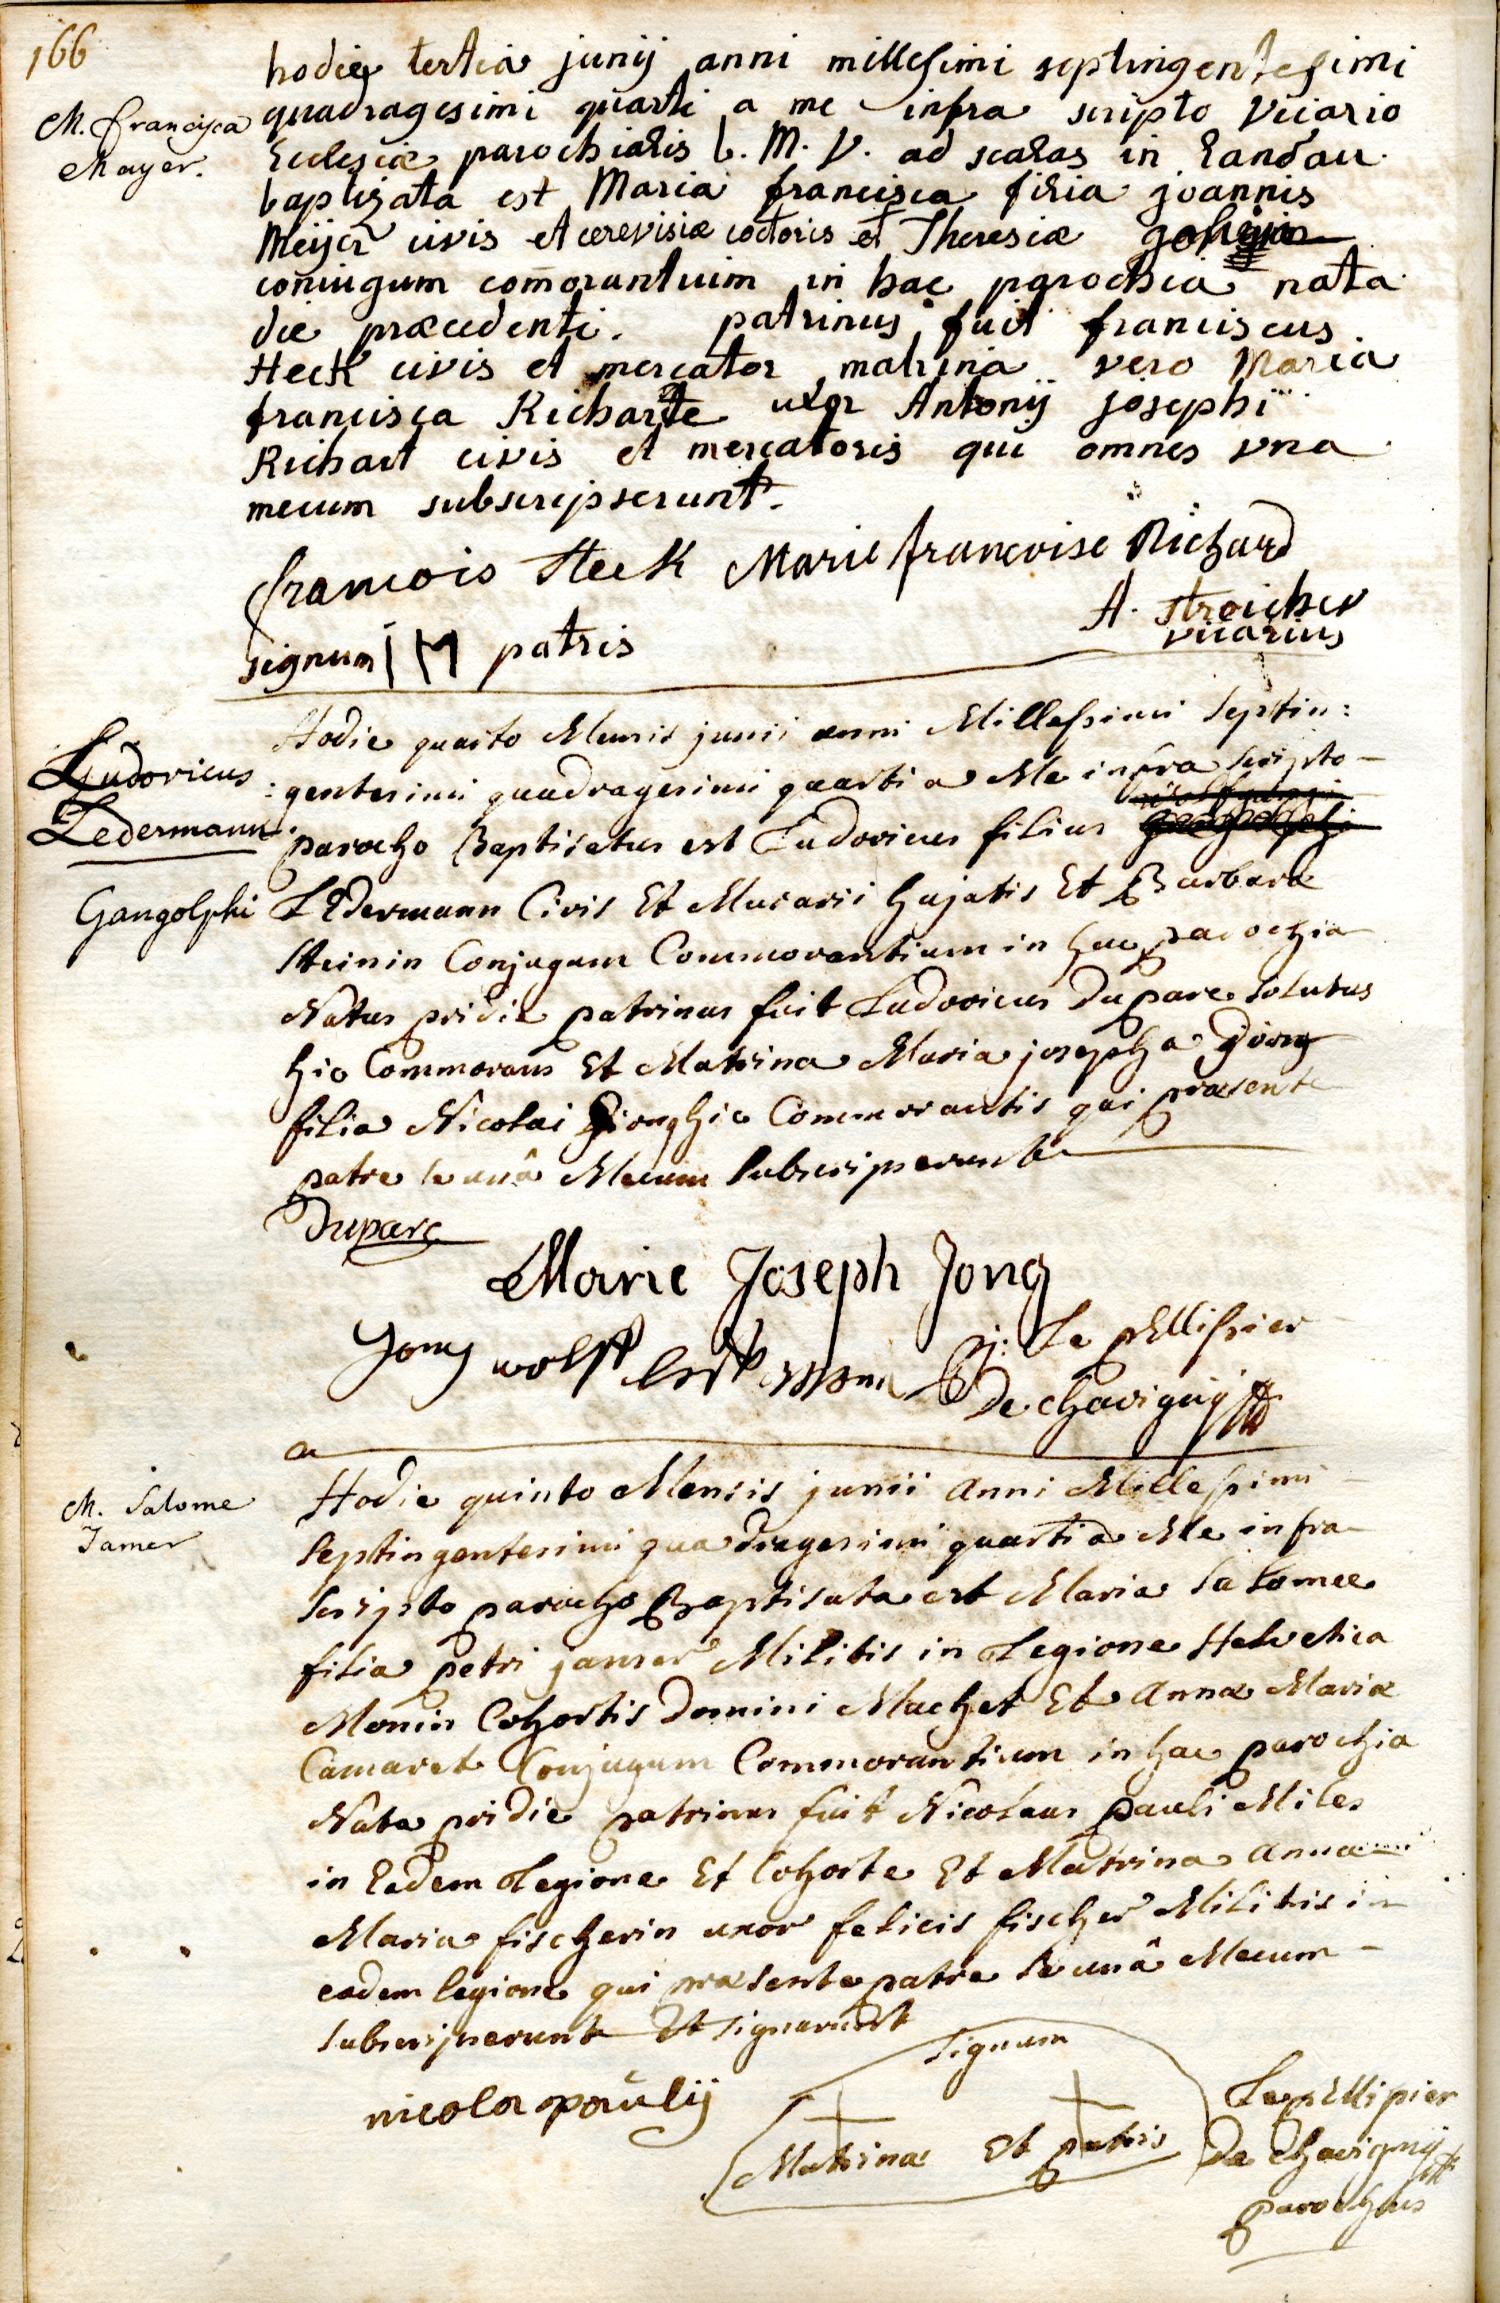 166
M. Francisca
Mayer.
hodie tertia junij anni millesimi septingentesimi
quadragesimi quarti a me infra scripto Vicario
Ecclesiæ parochialis b. M. V. ad scalas in Landau
baptizata est Maria francisca filia joannis
Meijer civis et cerevisiæ coctoris et Theresiæ
coniugum com̄orantium in hac parochia nata
die præcedenti. patrinus fuit franciscus
Heck civis et mercator matrina vero Maria
francisca Richarte uxor Antonij josephi
Richart civis et mercatoris qui omnes vna
mecum subscripserunt.
francois Heck Marie francoise Richard
A. Streicher
vicarius
signum IM patris
Ludovicus
Ledermann
Gangolphi
Hodie quarto Mensis junii anni Millessimi Septin:
:gentesimi quadragesimi quarti a Me infra scripto
parocho Baptisatus est Ludovicus filius
Ledermann Civis Et Murarii hujatis Et Barbara
Steinin Conjugum Commorantium in hac parochia
Natus pridie patrinus fuit Ludovicus Duparc solutus
hic Commorans Et Matrina Maria josepha Jong
filia Nicolai Jong hic Commorantis qui præsente
patre se unâ Mecum Subscripserunt
Duparc
Marie Joseph Jong
Jong wolff
j: Le pellissier
De chavigny
M. Salome
Jamer
Hodie quinto Mensis junii anni Millessimi
Septingentesimi quadragesimi quarti a Me infra
Scripto parocho Baptisata est Maria Salomee
filia petri jamer Militis in Legione Helvetica
Monin Cohortis Domini Machet Et Annæ Mariæ
Camaret Conjugum Commorantium in hac parochia
Nata pridie patrinus fuit Nicolaus pauli Miles
in Eadem Legione Et Cohorte Et Matrina Anna
Maria fischerin uxor felicis fischer Militis in
eadem legione qui præsente patre se unâ Mecum
subscripserunt Et signarunt
Signum
nicola paulij
Matrinæ Et patris
Le pellissier
De chavigny
parochus